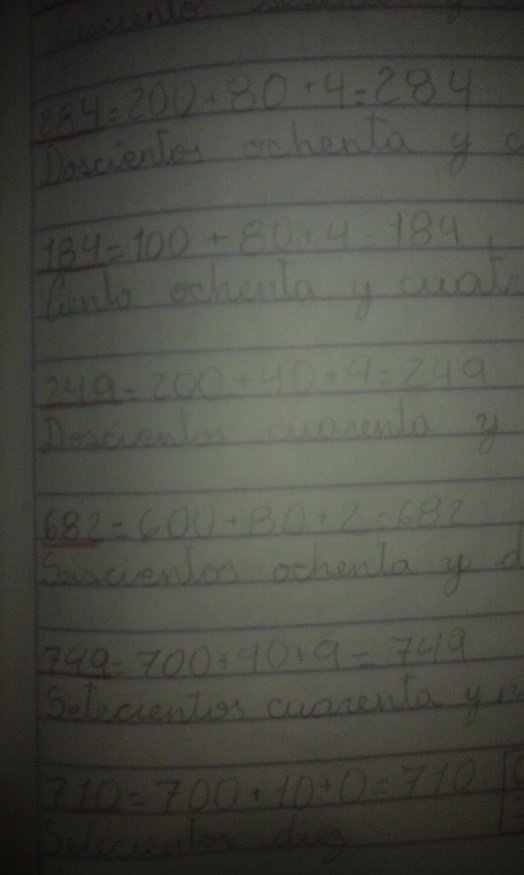 284=200+80+4=284
Doscientos ochenta y c
184=100+80+4=184
Ciento ochenta y cuat
249=200+40+9=249
Doscientos cuarenta y
682=600+80+2=682
Seiscientos ochenta y d
749=700+40+9=749
Setecientos cuarenta y n
710=700+10+0=710
Setecientos diez